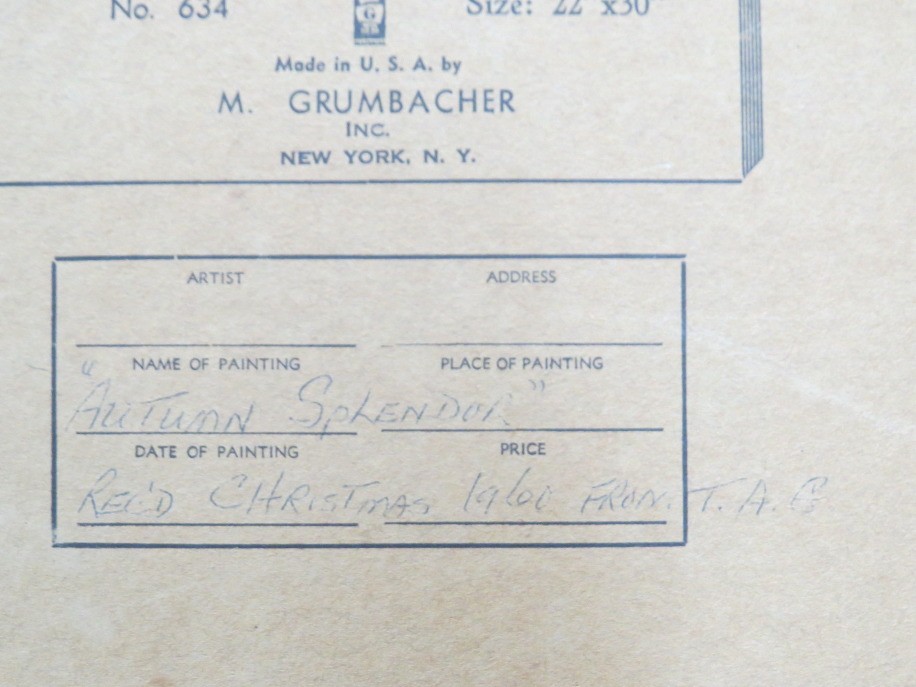 No. 634 Size: 22" x30"
Made in U. S. A. by
M. GRUMBACHER
INC.
NEW YORK, N. Y.
ARTIST ADDRESS
NAME OF PAINTING PLACE OF PAINTING
"AUTUMN SPLENDOR"
DATE OF PAINTING PRICE
REC'D CHRISTMAS 1960 FROM T. A. G